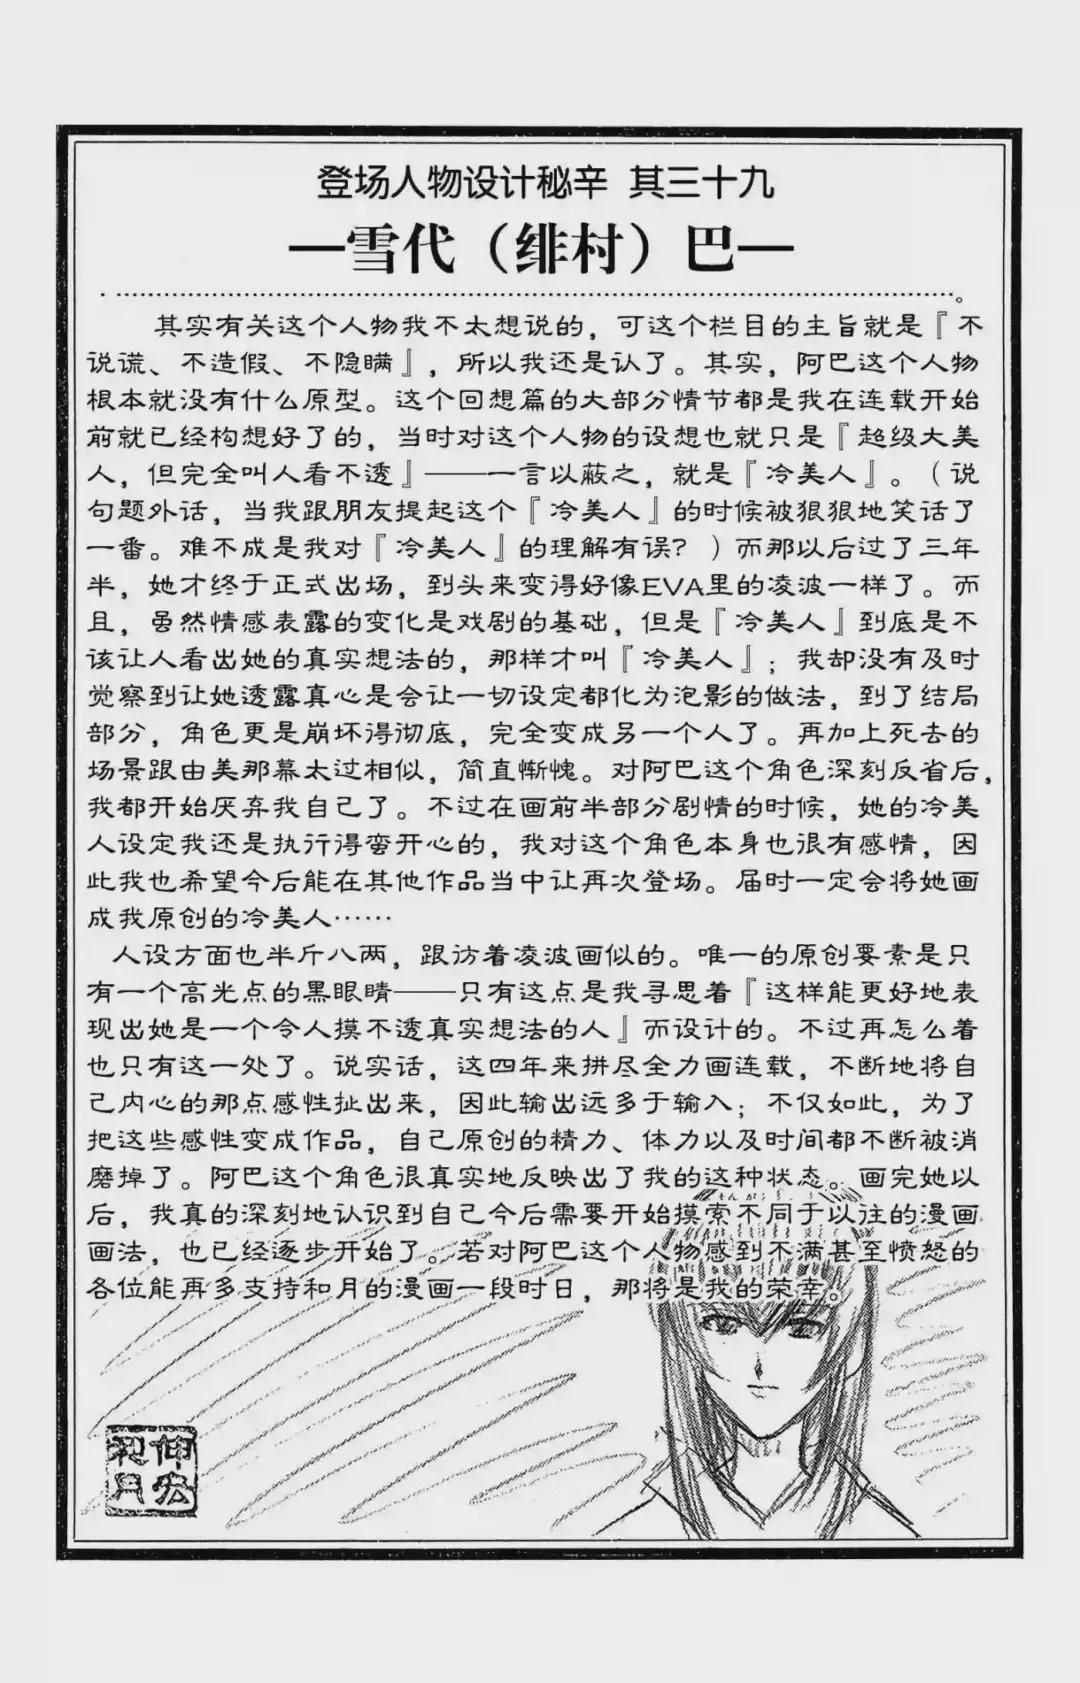 登场人物设计秘辛 其三十九
—雪代（绯村）巴—
其实有关这个人物我不太想说的，可这个栏目的主旨就是『不
说谎、不造假、不隐瞒』，所以我还是认了。其实，阿巴这个人物
根本就没有什么原型。这个回想篇的大部分情节都是我在连载开始
前就已经构想好了的，当时对这个人物的设想也就只是『超级大美
人，但完全叫人看不透』——一言以蔽之，就是『冷美人』。（说
句题外话，当我跟朋友提起这个『冷美人』的时候被狠狠地笑话了
一番。难不成是我对『冷美人』的理解有误？）而那以后过了三年
半，她才终于正式出场，到头来变得好像EVA里的凌波一样了。而
且，虽然情感表露的变化是戏剧的基础，但是『冷美人』到底是不
该让人看出她的真实想法的，那样才叫『冷美人』；我却没有及时
觉察到让她透露真心是会让一切设定都化为泡影的做法，到了结局
部分，角色更是崩坏得彻底，完全变成另一个人了。再加上死去的
场景跟由美那幕太过相似，简直惭愧。对阿巴这个角色深刻反省后，
我都开始厌弃我自己了。不过在画前半部分剧情的时候，她的冷美
人设定我还是执行得蛮开心的，我对这个角色本身也很有感情，因
此我也希望今后能在其他作品当中让再次登场。届时一定会将她画
成我原创的冷美人……
人设方面也半斤八两，跟访着凌波画似的。唯一的原创要素是只
有一个高光点的黑眼睛——只有这点是我寻思着『这样能更好地表
现出她是一个令人摸不透真实想法的人』而设计的。不过再怎么着
也只有这一处了。说实话，这四年来拼尽全力画连载，不断地将自
己内心的那点感性扯出来，因此输出远多于输入；不仅如此，为了
把这些感性变成作品，自己原创的精力、体力以及时间都不断被消
磨掉了。阿巴这个角色很真实地反映出了我的这种状态。画完她以
后，我真的深刻地认识到自己今后需要开始摸索不同于以往的漫画
画法，也已经逐步开始了。若对阿巴这个人物感到不满甚至愤怒的
各位能再多支持和月的漫画一段时日，那将是我的荣幸。
伸宏
和月